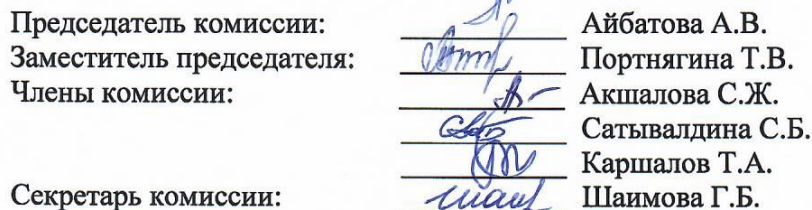 Председатель комиссии: Айбатова А.В.
Заместитель председателя: Портнягина Т.В.
Члены комиссии: Акшалова С.Ж.
Сатывалдина С.Б.
Каршалов Т.А.
Секретарь комиссии: Шаимова Г.Б.